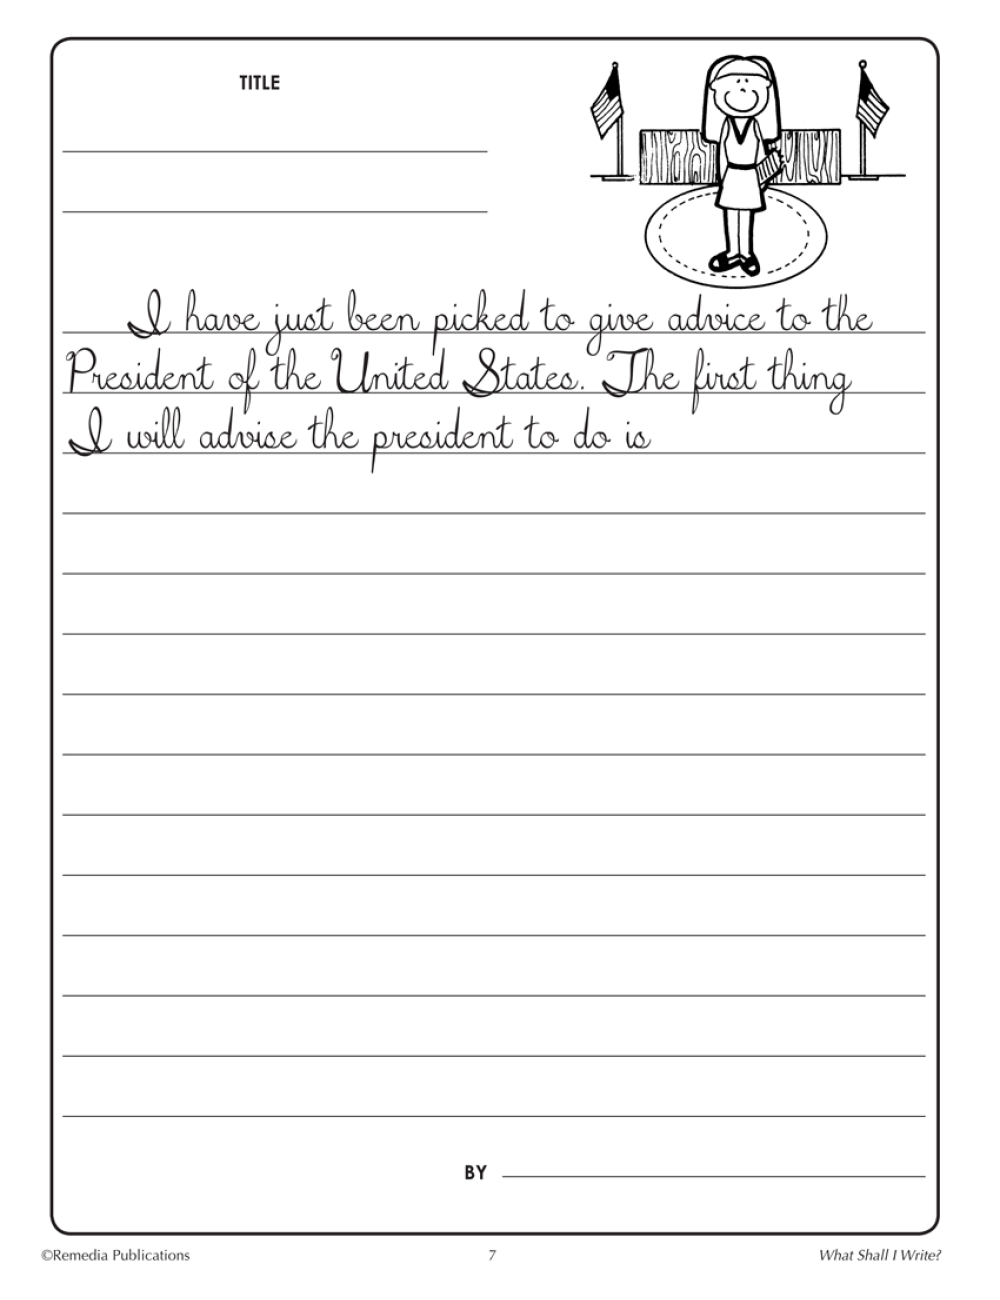 TITLE
I have just been picked to give advice to the
President of the United States. The first thing
I will advise the president to do is
BY
©Remedia Publications 7 What Shall I Write?